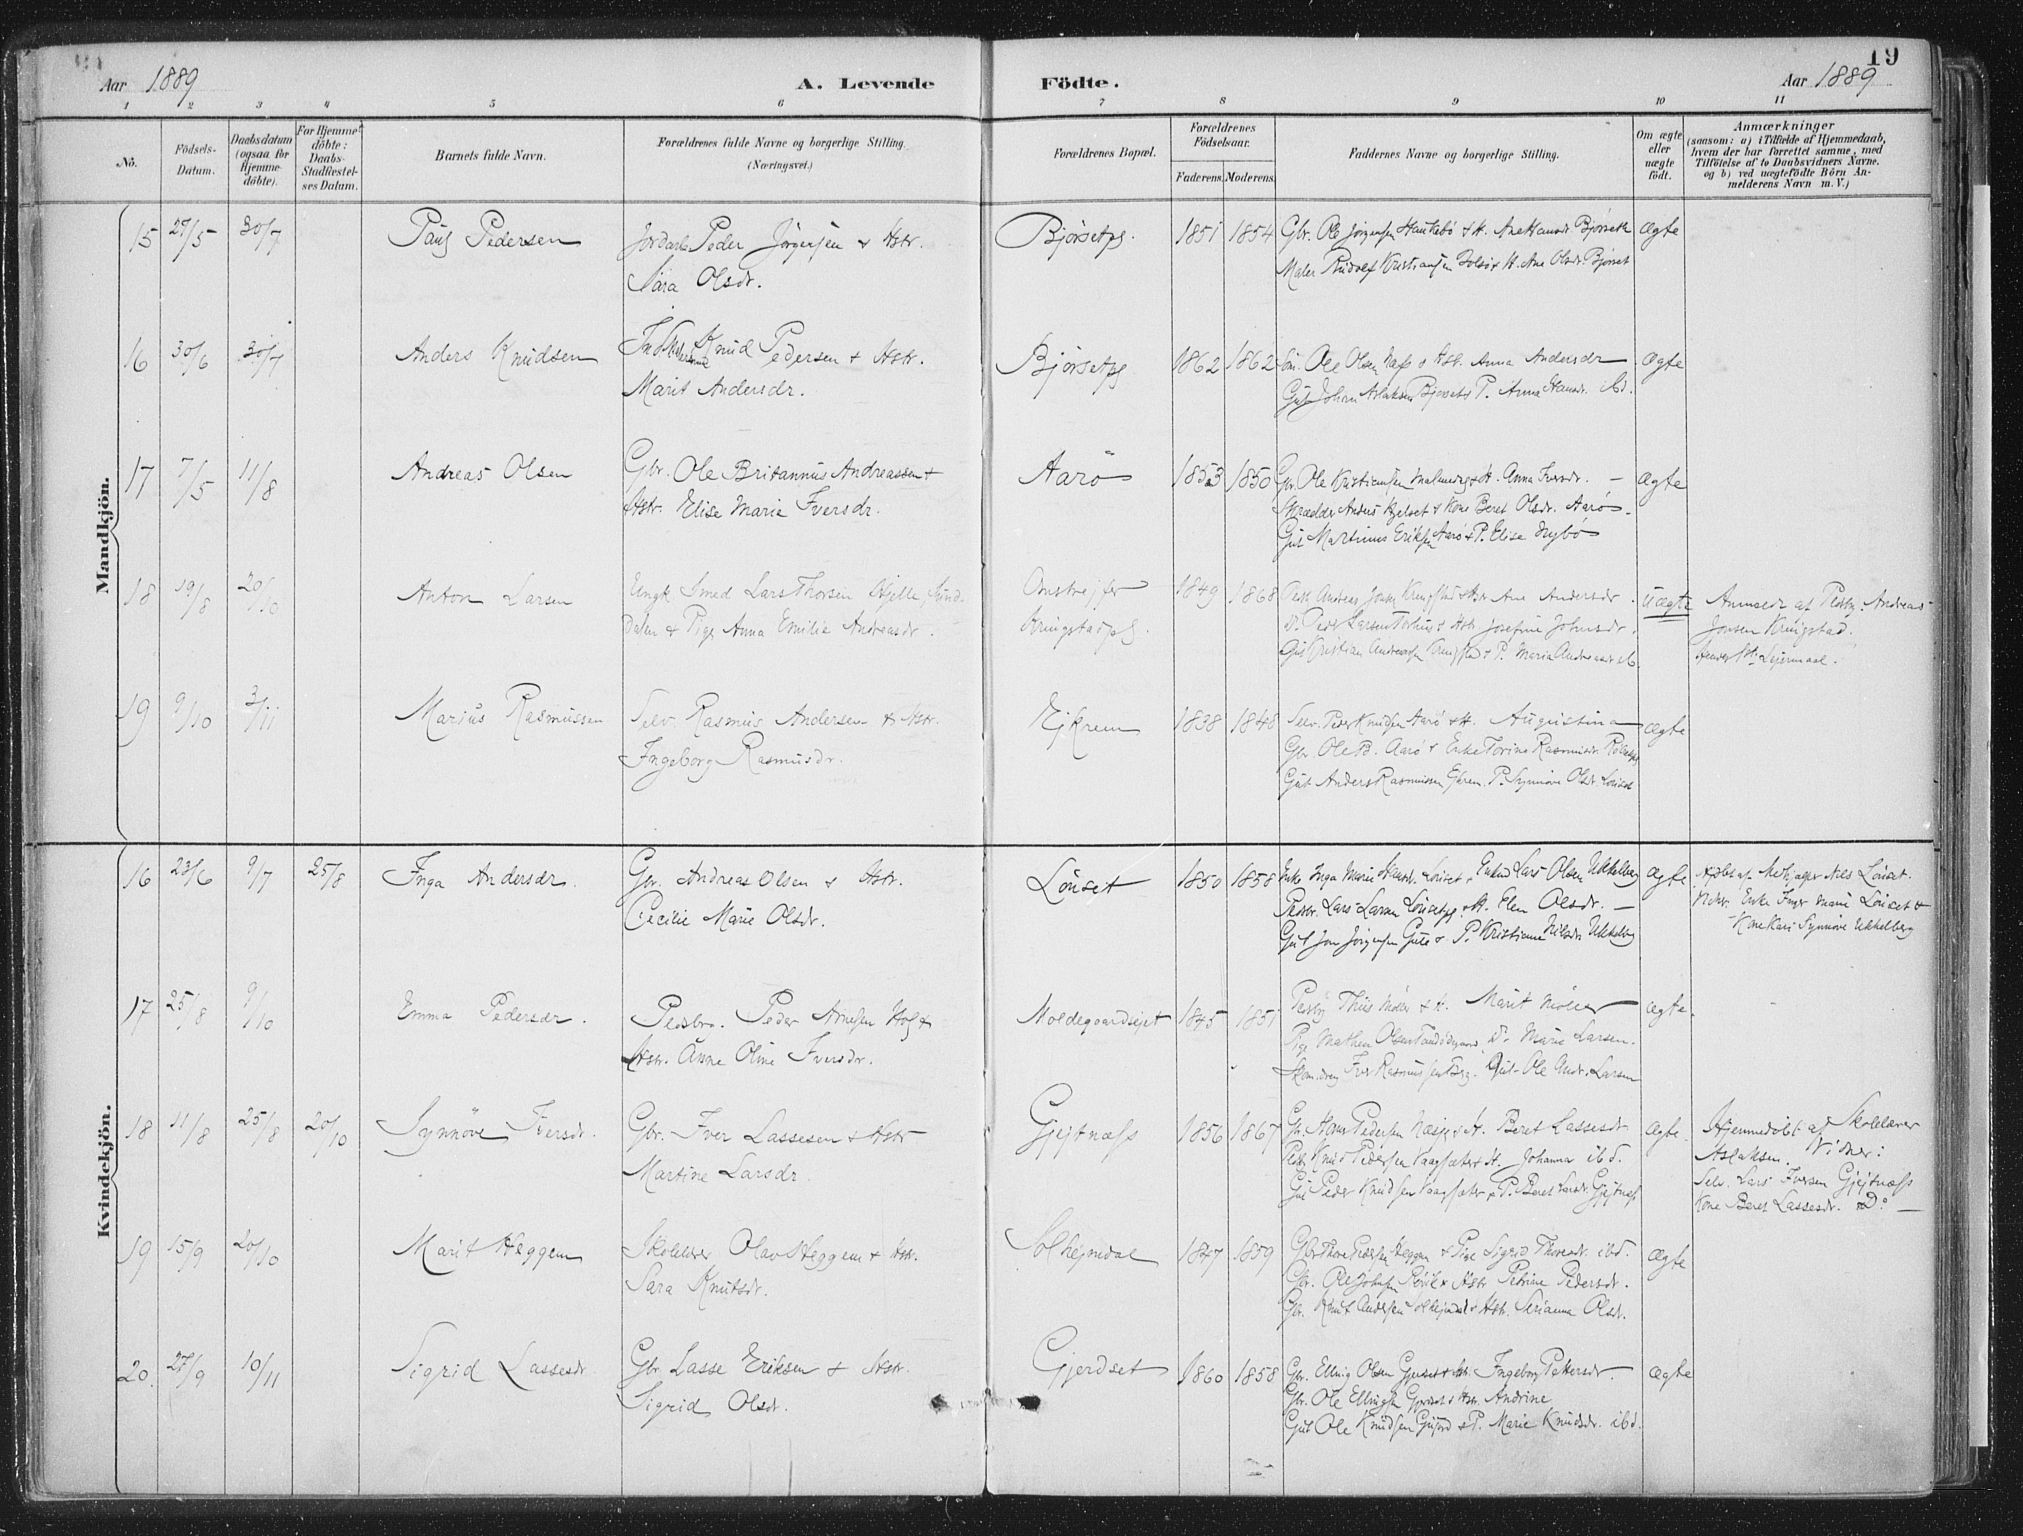 19
Aar 1889 A. Levende Födte. Aar 1889
1 2 3 4 5 6 7 8 9 10 11
Nō.
Födsels-Datum.
Daabsdatum (ogsaa for Hjemme-döbte).
For Hjemme-döbte: Daabs-Stadfæstelses Datum.
Barnets fulde Navn.
Forældrenes fulde Navne og borgerlige Stilling. (Næringsvei.)
Forældrenes Bopæl.
Forældrenes Födselsaar.
Faderens. Moderens.
Faddernes Navne og borgerlige Stilling.
Om ægte eller uægte födt.
Anmærkninger
(saasom: a) i Tilfælde af Hjemmedaab, hvem der har forrettet samme, med Tilföielse af to Daabsvidners Navne. og b) ved uægtefödte Börn Anmelderens Navn m. V.)
Mandkjön.
15 27/5 30/7 Paul Pedersen Peder Jörgensen & Hstr. Bjørsetpl. 1851 1854 Gbr. Ole Jørgensen Haukebö & H. Ane Hansdr Bjørseth ægte
Sara Olsdr. Maler Rudolf Kristiansen & H. Ane Olsdr. Bjørset
16 30/6 30/7 Anders Knudsen Knud Pedersen & Hstr. Bjørsetpl 1862 1862 Ole Olsen & Hst. Anna Andersdr ægte
Marit Andersdr. Gut Johan Aslaksen Bjørset & P. Anna Hansdr. ibd.
17 7/5 11/8 Andreas Olsen Gbr. Ole Britannus Andreassen & Aarö 1853 1850 Gbr. Ole Kristiansen & H. Anna Iversdr. — ægte
Hstr. Elise Marie Iversdr. Skrædder Anders Hjelset & Kone Beret Olsdr. Aarö.
Gut Martinus Eriksen Aarö & P. Elise Nybö
18 19/8 20/10 Anton Larsen Ungk. Smed Lars Thorsen Hjelle Sund- 1849 1868 Andreas Jonsen Kringstad & Hstr Ane Andersdr. Uægte Anmeldt af Pladsbr. Andreas
Dalen & Pige Anna Emilie Andreasdr. Kringstadpl. Peder Larsen & Hstr Josefine Johnsdr. Jonsen Kringstad.
Gut Kristian Andreassen Kringstad & P. Maria Andreasdr ib. Hendes 1ste Leiermaal.
19 9/10 3/11 Marius Rasmussen Selv. Rasmus Andersen & Hstr. Ejkrem 1838 1846 Selv. Peder Knudsen Aarö & H. Augustina ægte
Ingeborg Rasmusdr. Gbr. Ole B. Aarö & Enke Torine Rasmusdr.
Gut Anders Rasmussen Ejkrem. P. Synnöve Olsdr. Lönset
Kvindekjön.
16 23/6 9/7 25/8 Inga Andersdr. Gbr. Andreas Olsen & Hstr. Lönset 1850 1858 Enke Inga Marie Lönset & Lars Olsen Ukkelberg ægte Hjdbt. af Medhjælper Nils Lönset.
Cecilie Marie Olsdr. Pladsbr. Lars Larsen Lönsetpl. & H. Elen Olsdr. — Enke Inger Marie Lönset &
Gut Jon Jörgensen & P. Kristianne Nilsdr Ukkelberg Kone Kari Synnöve Ukkelberg
17 25/8 9/10 Emma Pedersdr. Pladsbr. Peder Arnesen & Moldegaardsejet 1845 1851 & H. Marit ægte.
Hstr. Anne Oline Iversdr. Pige Mathea Olsen Do Marie Larsen.
Iver Rasmussen Berg. Gut Ole Andr. Larsen
18 11/8 25/8 20/10 Synnöve Iversdr. Gbr. Iver Lassesen & Hstr Gjejtnæss 1856 1867 Gbr. Hans Pedersen & H. Beret Lassesdr ægte. Hjemmedöbt af Skolelærer
Martine Larsdr Knud Pedersen & H. Johanna ibd. Aslaksen. Vidner:
Gut Peder Knudsen & P. Beret Larsdr. Gjejtnæss Selv. Lars Iversen Gjejtnæss
Kone Beret Lassesdr. Do. —
19 15/9 20/10 Marit Heggem Skolelærer Olav Heggem & Hstr. Solhejmdal 1847 1859 Gbr Thore Pedersen Heggem & Pige Sigrid Thoresdr. ibd. ægte
Sara Knutsdr. Gbr. Ole Johnsen & Hstr Petrine Pedersdr.
Gbr. Knut Andersen Solhejmdal & Hstr. Serianna Olsdr.
20 27/9 10/11 Sigrid Lassesdr. Gbr Lasse Eriksen & Hstr. Gjerdset 1860 1858 Gbr. Elling Olsen Gjerdset & Hstr. Ingeborg Pettersdr. ægte
Sigrid Olsdr. Gbr. Ole Ellingsen Gjerdset & Hstr. Andrine
Gut Ole Knudsen & P. Marie Knudsdr. ibd.